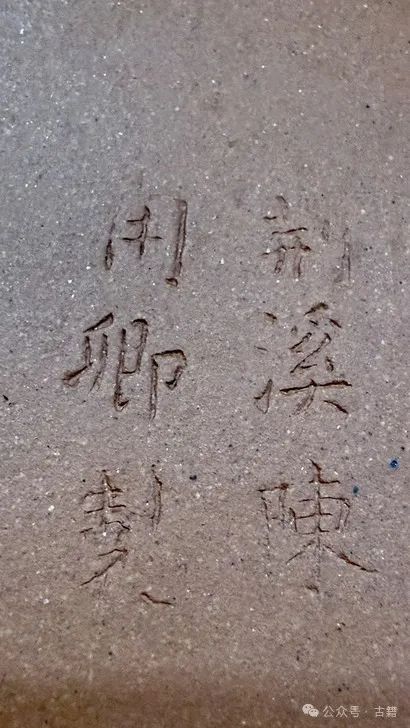 荆溪陳
用卿製
公众号·古籍